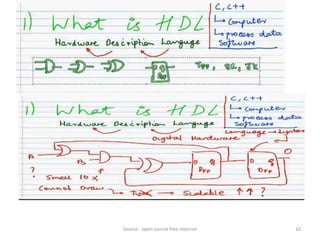 1) What is HDL
C, C++
↳ Computer
↳ process data
Software
Hardware Description Language
TFF, SR, JK
1) What is HDL
C, C++
↳ Computer
↳ process data
Software
Hardware Description Language
Language → Syntax
Digital Hardware
A
B
?
D Q
DFF
D Q
DFF
O
Small 10 x
Cannot Draw → Time → Scalable ↑ ↑ ?
Source : open source free internet
10